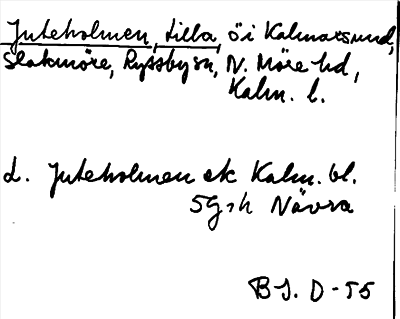 Juteholmen, Lilla, ö i Kalmarsund,
Slakmöre, Ryssby sn, N. Möre hd,
Kalm. l.
L. Juteholmen ek Kalm. bl.
5G, h Nävra
BJ. D-55